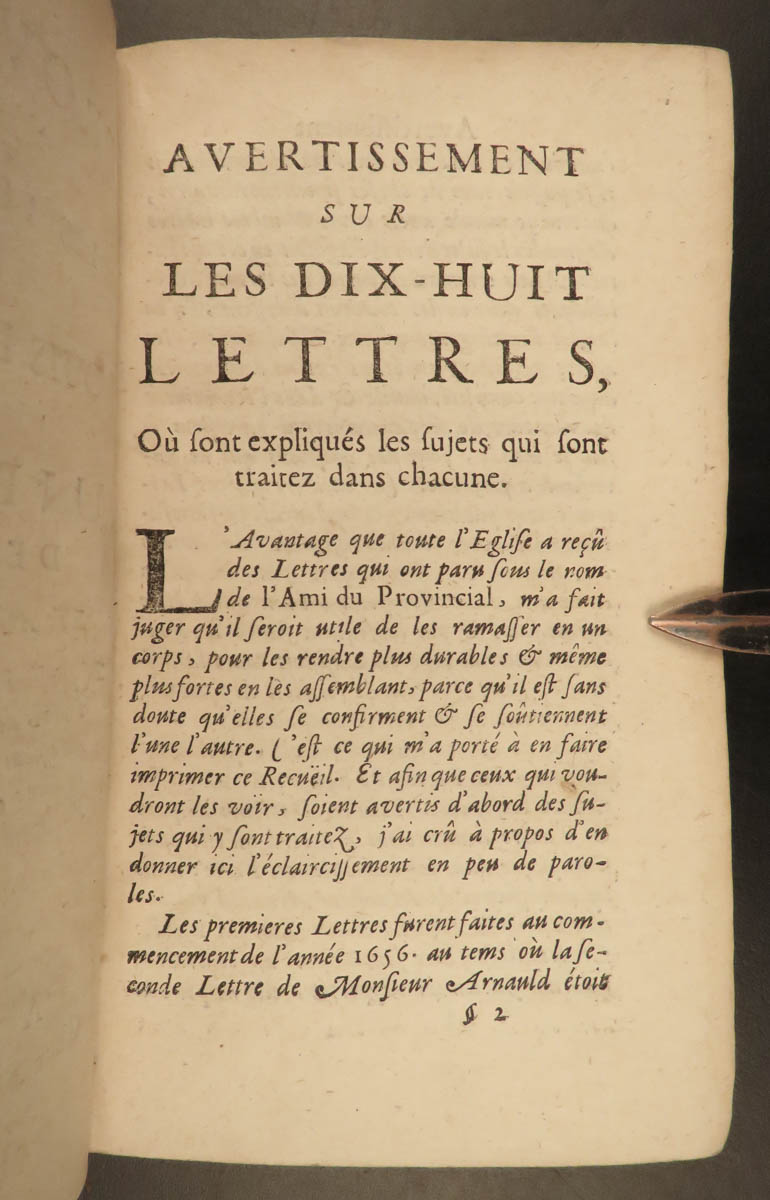 AVERTISSEMENT
SUR
LES DIX-HUIT
LETTRES,
Où ſont expliqués les ſujets qui ſont
traitez dans chacune.
L'Avantage que toute l'Egliſe a reçû
des Lettres qui ont paru ſous le nom
de l'Ami du Provincial, m'a fait
juger qu'il ſeroit utile de les ramaſſer en un
corps, pour les rendre plus durables & même
plus fortes en les aſſemblant, parce qu'il eſt ſans
doute qu'elles ſe confirment & ſe ſoûtiennent
l'une l'autre. C'eſt ce qui m'a porté à en faire
imprimer ce Recüeil. Et afin que ceux qui vou-
dront les voir, ſoient avertis d'abord des ſu-
jets qui y ſont traitez, j'ai crû à propos d'en
donner ici l'éclairciſſement en peu de paro-
les.
Les premieres Lettres furent faites au com-
mencement de l'année 1656. au tems où la ſe-
conde Lettre de Monſieur Arnauld étoit
§ 2